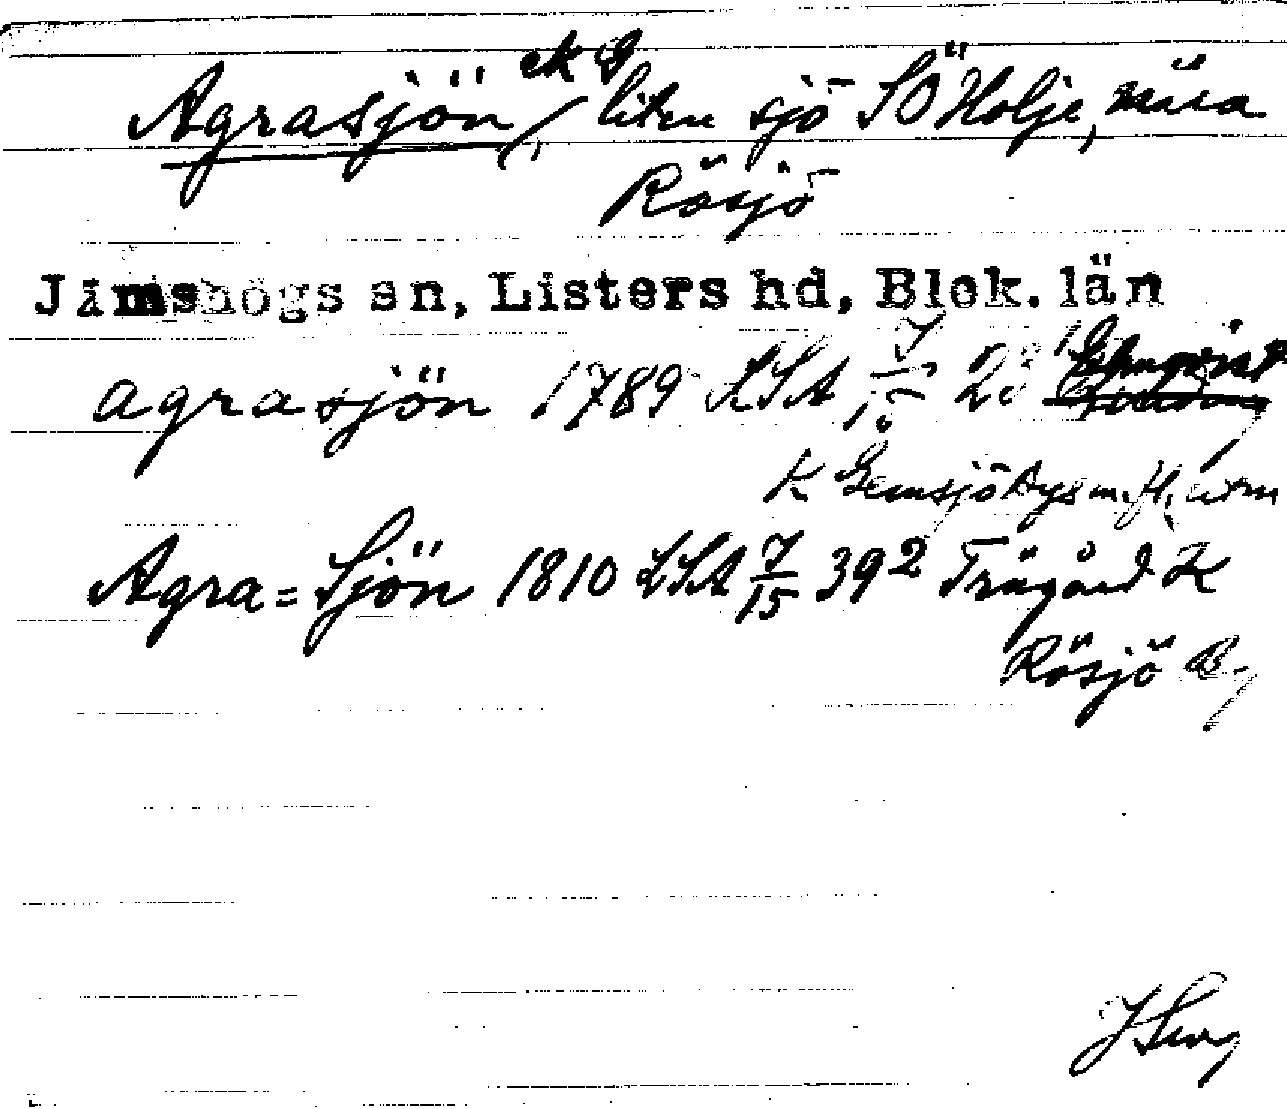 Agrasjön, ek G liten sjö SÖ Holje, nära
Rösjö
Jämshögs sn, Listers hd, Blek. län
agrasjön 1789 LSA J/15 28¹ Elmqvist
K Gemsjö bys m.fl. utm
Agra=Sjön 1810 LSA J/15 39² Trägård K
Rösjö By